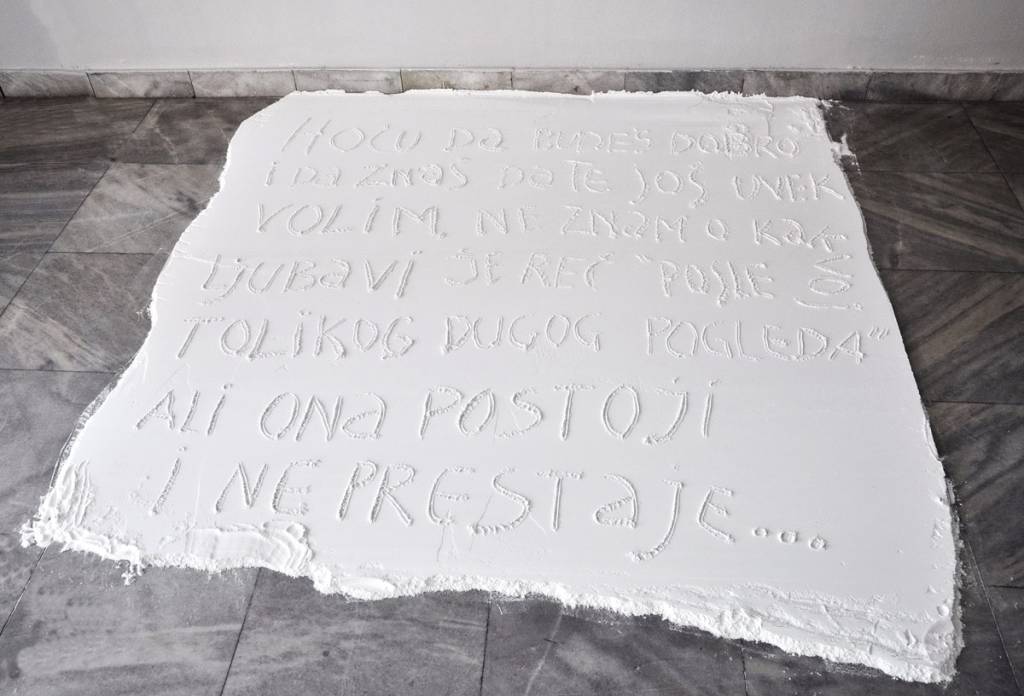 HOĆU Da BUDEŠ DOBRO
i Da ZNaŠ Da TE JOŠ UVEK
VOLIM. NE ZNaM O KaKVOJ
LJUBaVi JE REČ "POSLE
TOLIKOG DUGOG POGLEDA"
ALi ONa POSTOJi
i NE PRESTaJE...